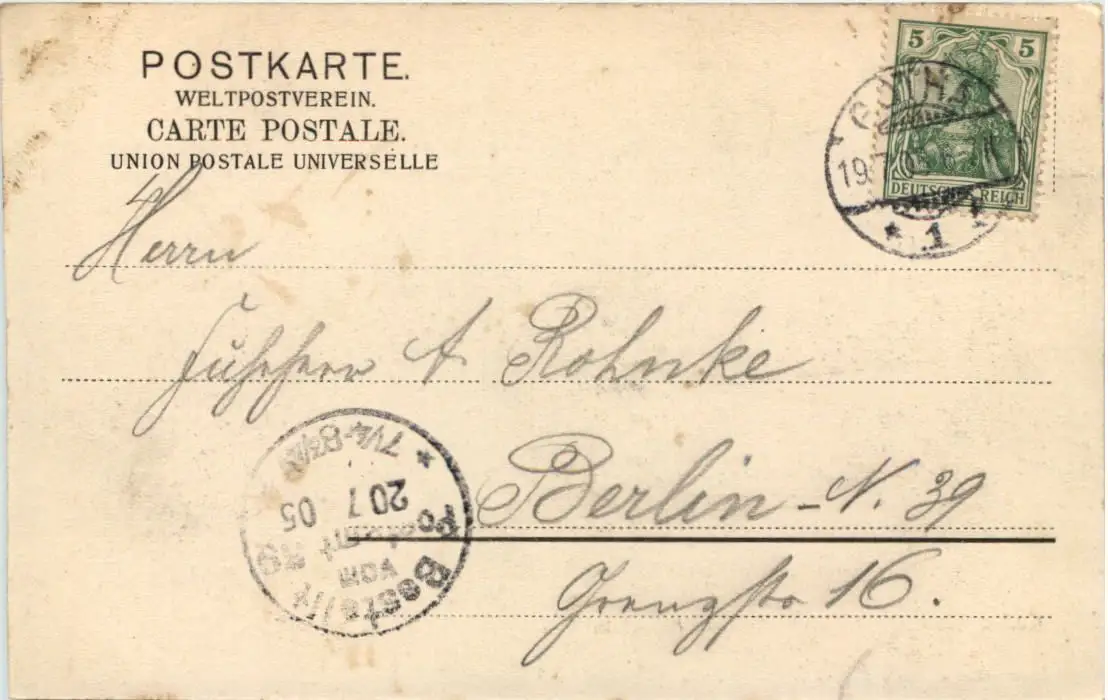 POSTKARTE.
WELTPOSTVEREIN.
CARTE POSTALE.
UNION POSTALE UNIVERSELLE
5 5
DEUTSCHES REICH
GOTHA
19.7.05.
* 1
Herrn
A Rohnke
Berlin - N. 39
Grenzstr 16.
Bestellt
vom
Postamt 39
20 7 05
* 7¼-8¾